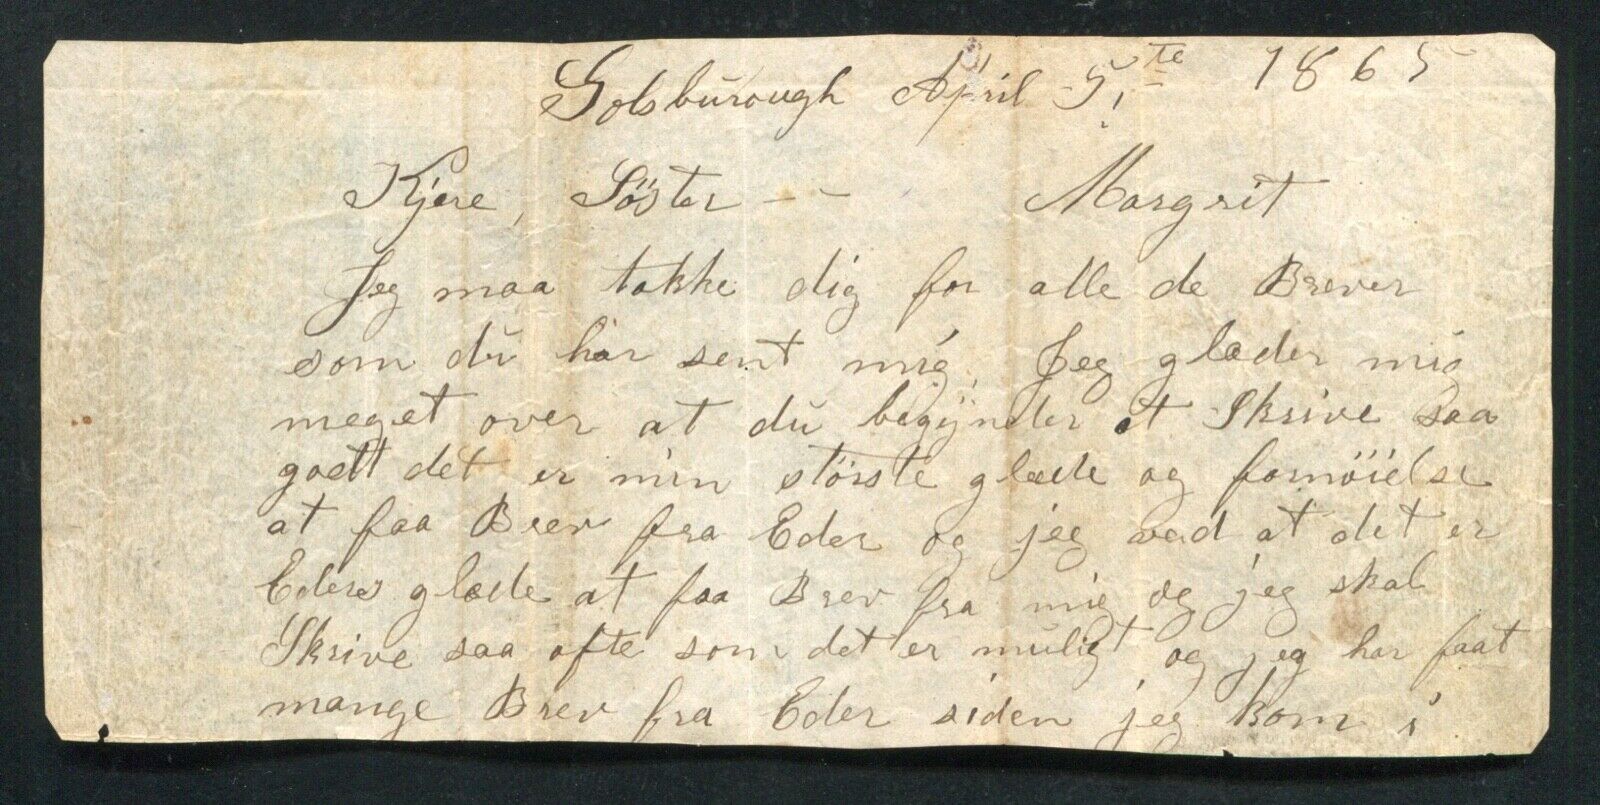 Golsbürough April 5te 1865
Kjere, Söster - - Margrit
Jeg maa takke dig for alle de Brever
som dü har sent mig, Jeg glæder mig
meget over at dü begÿnder at Skrive saa
goett det er min störste glæde og fornöielse
at faa Brev fra Eder og jeg ved at det er
Eders glæde at faa Brev fra mig og jeg skal
Skrive saa ofte som det er müligt og jeg har faat
mange Brev fra Eder siden jeg kom i